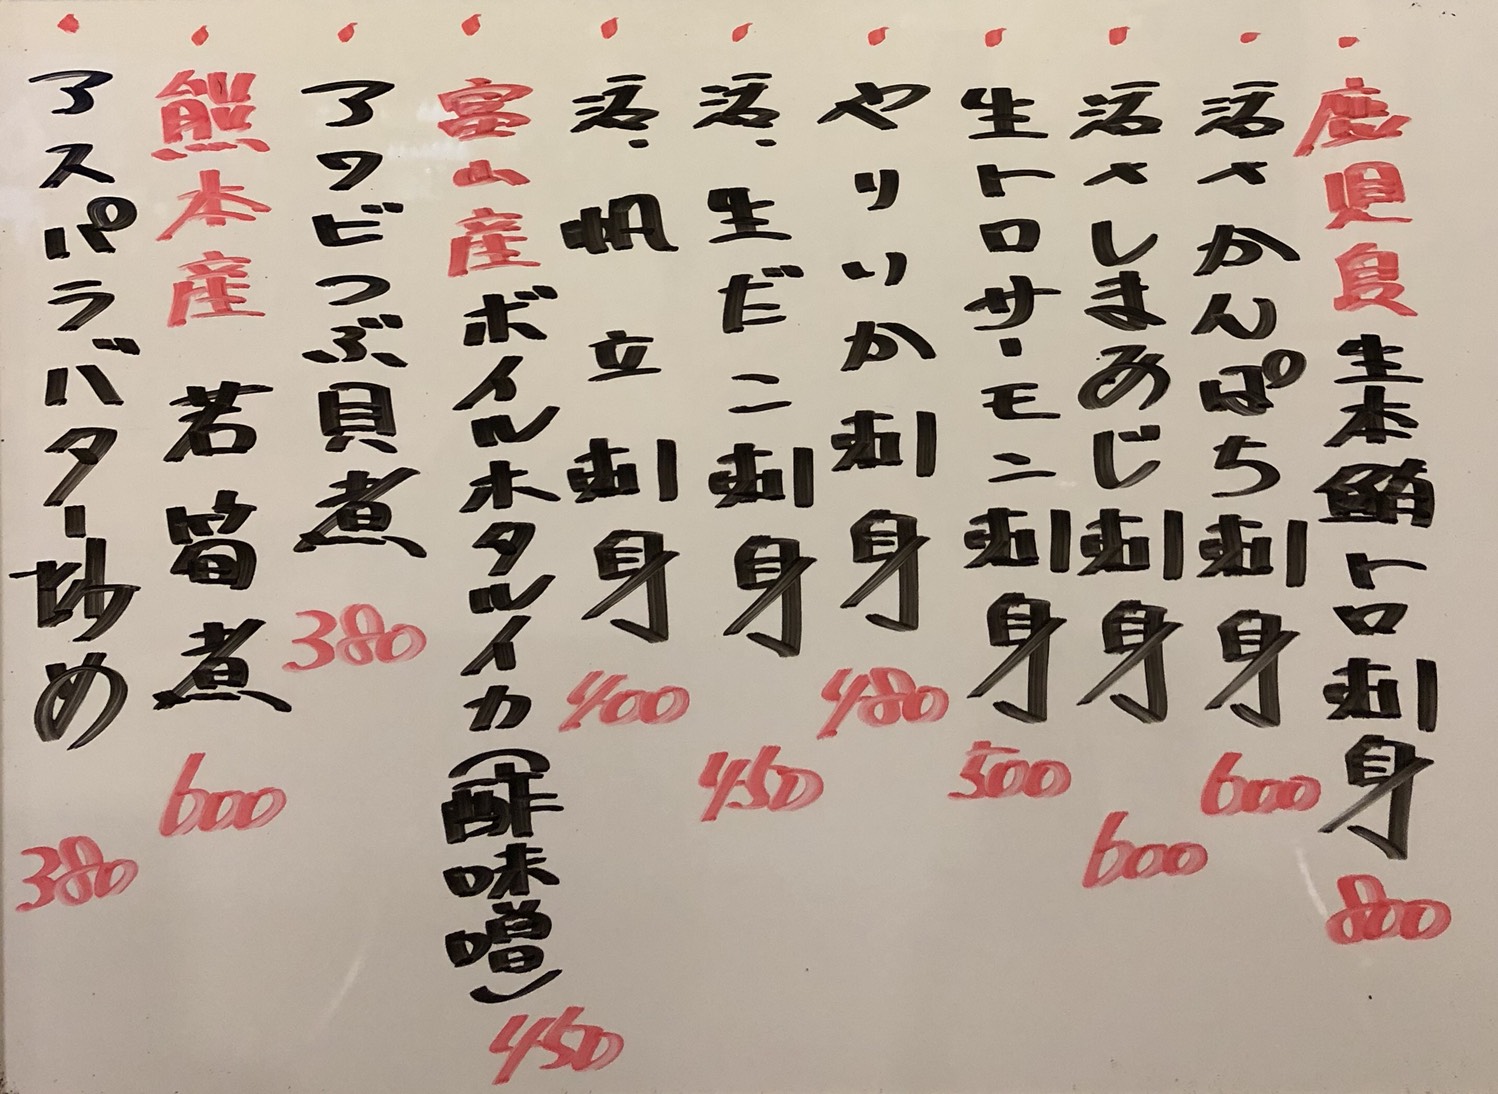 鹿児島生本鮪トロ刺身 800
活〆かんぱち刺身 600
活〆しまあじ刺身 600
生トロサーモン刺身 500
やりいか刺身 480
活・生だこ刺身 450
活・帆立刺身 400
富山産ボイルホタルイカ(酢味噌) 450
アワビつぶ貝煮 380
熊本産 若筍煮 600
アスパラバター炒め 380